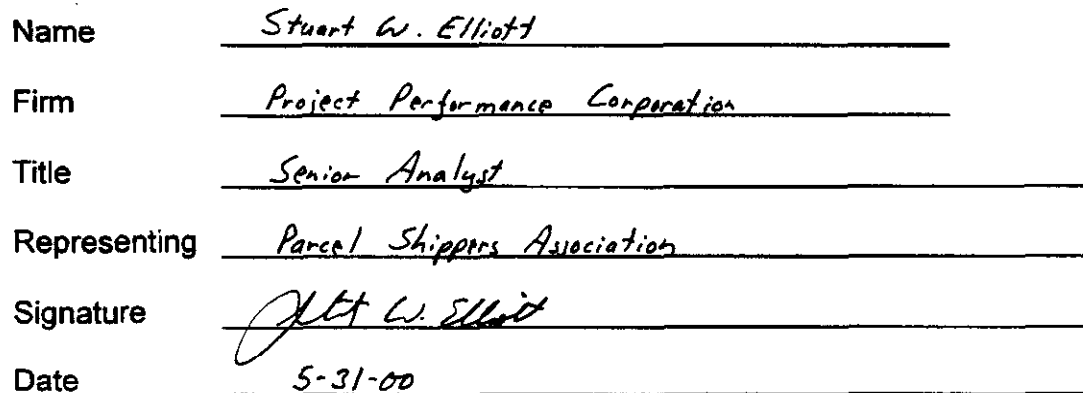 Name Stuart W. Elliott
Firm Project Performance Corporation
Title Senior Analyst
Representing Parcel Shippers Association
Signature W. Elliott
Date 5-31-00